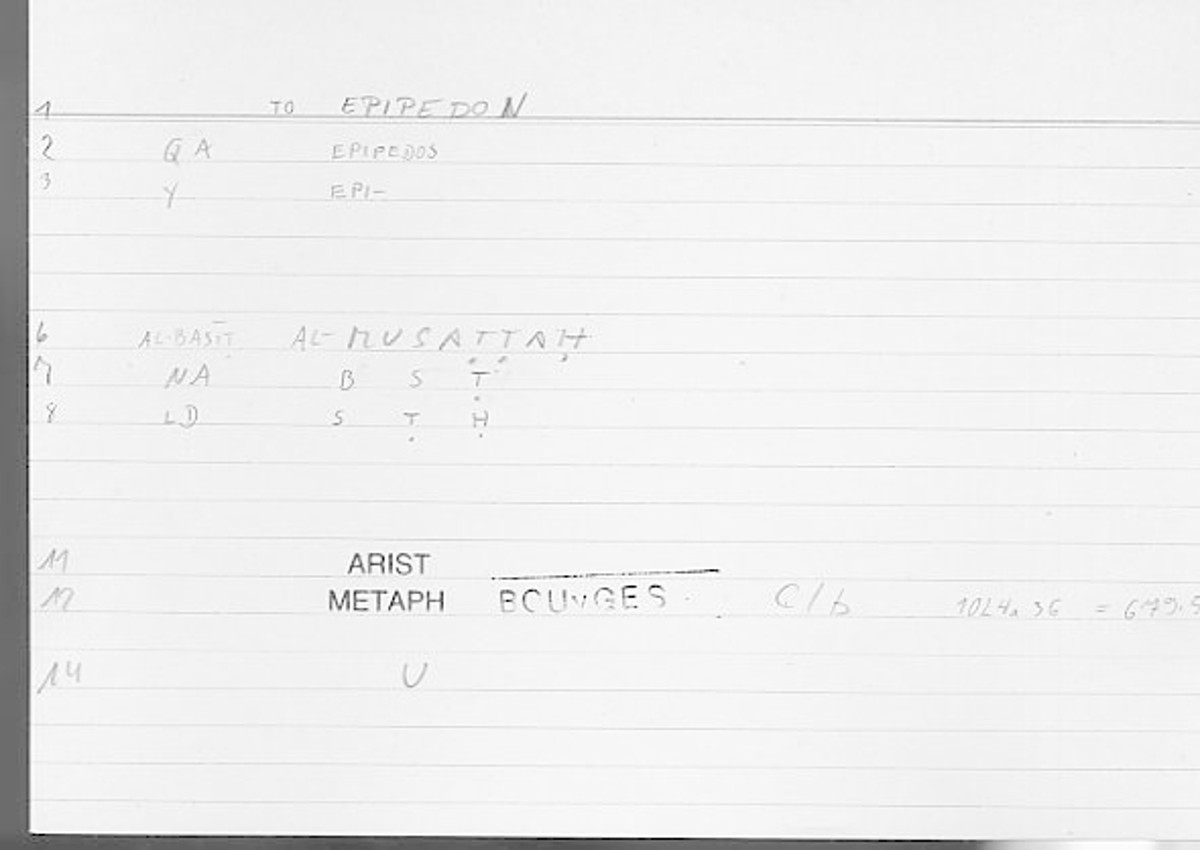 1 TO EPIPEDON
2 QA EPIPEDOS
3 Y EPI-
6 AL-BASĪṬ AL-MUSAṬṬAḤ
7 NA B S Ṭ
8 LD S Ṭ Ḥ
11 ARIST
12 METAPH BOUYGES C/b 1024a36 = 679.5
14 U